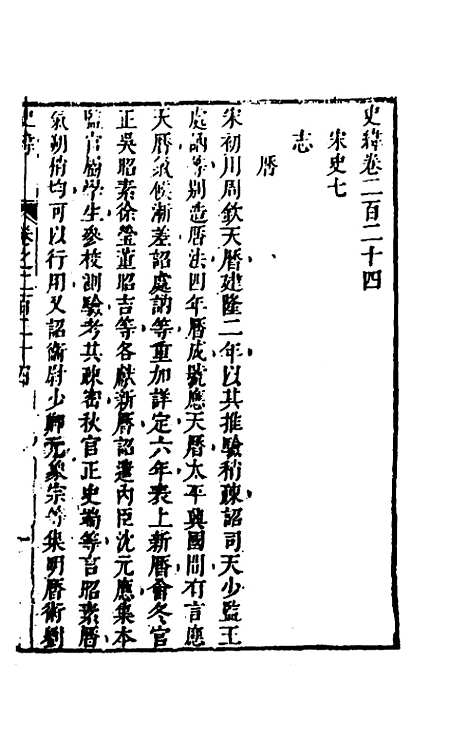 史緯卷二百二十四
宋史七
志
曆
宋初用周欽天曆建隆二年以其推驗稍疎詔司天少監王
處訥等别造曆法四年曆成號應天曆太平興國間有言應
天曆氣候漸差詔處訥等重加詳定六年表上新曆會冬官
正吳昭素徐瑩董昭吉等各獻新曆詔遣内臣沈元應集本
監官曆學生參校測驗考其疎密秋官正史端等言昭素曆
氣朔稍均可以行用又詔衛尉少卿元象宗等集明曆術劉
史緯
卷之二百二十四